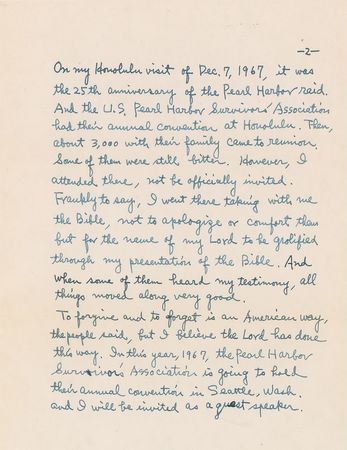 -2-
On my Honolulu visit of Dec. 7, 1967, it was
the 25th anniversary of the Pearl Harbor raid.
And the U.S. Pearl Harbor Survivors' Association
had their annual convention at Honolulu. Then,
about 3,000 with their family came to reunion.
Some of them were still bitter. However, I
attended there, not be officially invited.
Frankly to say, I went there taking with me
the Bible, not to apologize or comfort them
but for the name of my Lord to be grolified
through my presentation of the Bible. And
when some of them heard my testimony, all
things moved along very good.
To forgive and to forget is an American way,
the people said, but I believe the Lord has done
this way. In this year, 1967, the Pearl Harbor
Survivors' Association is going to hold
their annual convention in Seattle, Wash.
and I will be invited as a guest speaker.